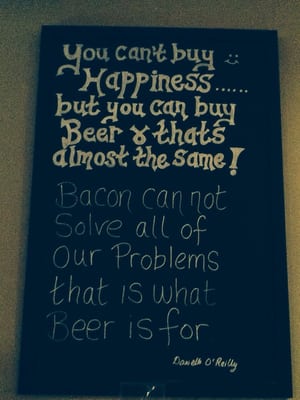 You can't buy
Happiness......
but you can buy
Beer & thats
almost the same!
Bacon can not
Solve all of
Our Problems
that is what
Beer is for
Danielle O'Reilly